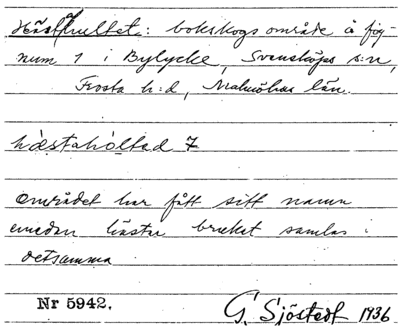 Hästhultet: bokskogsområde å fäg-
num 1 i Bylycke, Svensköps s:n,
Frosta h:d, Malmöhus län.
hæstahóltad 7
Området har fått sitt namn
emedan hästar brukat samlas i
detsamma
Nr 5942.
G. Sjöstedt 1936